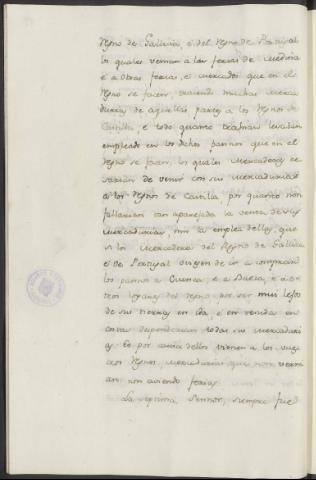 regno de Gallicia, e del regno de Portogal
los quales vernan a las ferias de Medina
e a otras ferias, e mercados que en el
regno se facen, trayendo muchas merca
durias de aquellas partes a los regnos de
Castilla e todo quanto trahian levavan
empleado en los dichos pannos que en el
regno se facen, los quales mercadores ce
sarian de venir con sus mercadurias
a los regnos de Castilla por quanto non
fallarian tan aparejada la venta de sus
mercadurias, nin la emplea dellas, que
si los mercadores del Regno de Gallicia
e de Portogal oviesen de ir a comprar
los pannos a Cuenca, e a Baeza, e a o
tros logares del regno por ser mui lejos
de sus tierras en ida, e en venida en
costa despenderian todas sus mercaduri
as, Es por causa dellos vienen a los vues
tros regnos, mercadurias que non verni
an non aviendo ferias
La septima, Sennor, siempre fue